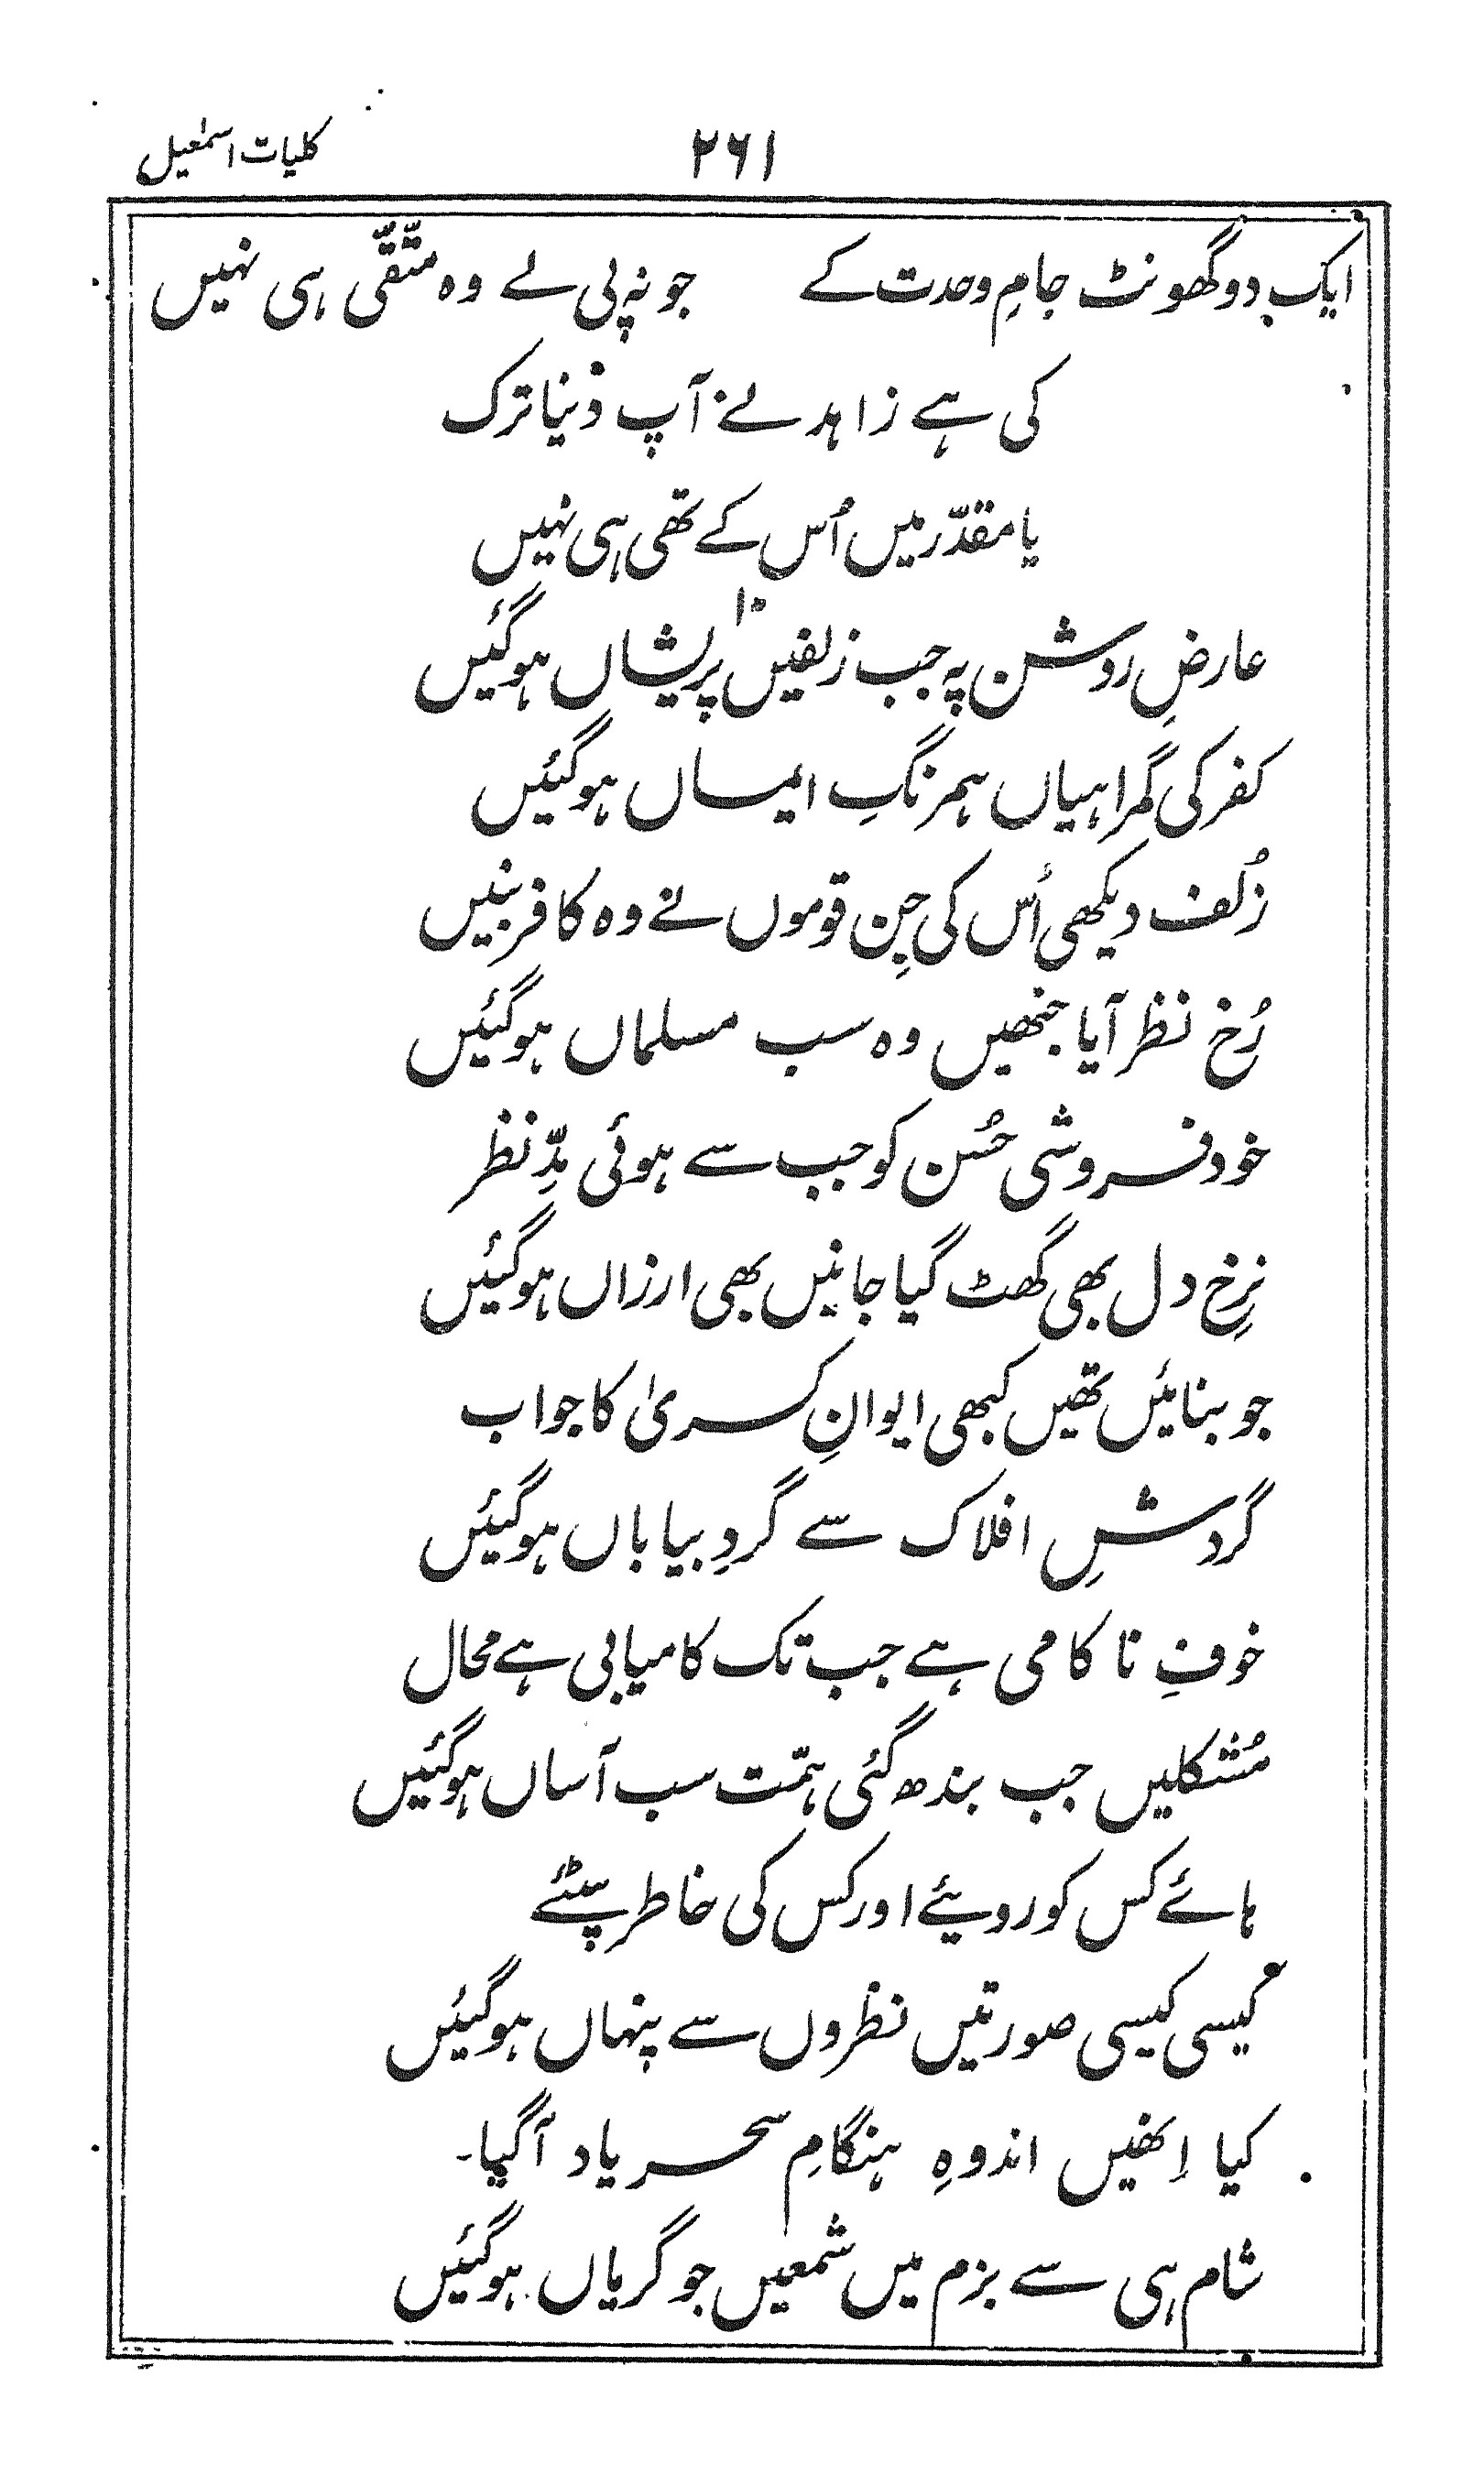 کلیات اسمٰعیل ۲۶۱
ایک دو گھونٹ جامِ وحدت کے جو نہ پی لے وہ متّقّی ہی نہیں
کی ہے زاہد نے آپ دُنیا ترک
یا مقدّر میں اُس کے تھی ہی نہیں
عارضِ روشن پہ جب زلفیں پریشاں ہوگئیں
کفر کی گمراہیاں ہمرنگِ ایماں ہوگیئں
زُلف دیکھی اُس کی جِن قوموں نے وہ کافر بنیں
رُخ نظر آیا جنھیں وہ سب مسلماں ہوگیئں
خود فروشی حُسن کو جب سے ہوئی مدِّ نظر
نِرخ دل بھی گھٹ گیا جانیں بھی ارزاں ہوگیئں
جو بنائیں تھیں کبھی ایوانِ کسریٰ کا جواب
گردشِ افلاک سے گردِ بیاباں ہوگیئں
خوفِ ناکامی ہے جب تک کامیابی ہے محال
مُشکلیں جب بندھ گئی ہمّت سب آساں ہوگئیں
ہائے کس کو رویئے اور کس کی خاطر پیٹئے
کیسی کیسی صورتیں نظروں سے پنہاں ہوگیئں
کیا اِنھیں اندوہِ ہنگامِ سحر یاد آگیا۔
شام ہی سے بزم میں شمعیں جو گریاں ہوگیئں